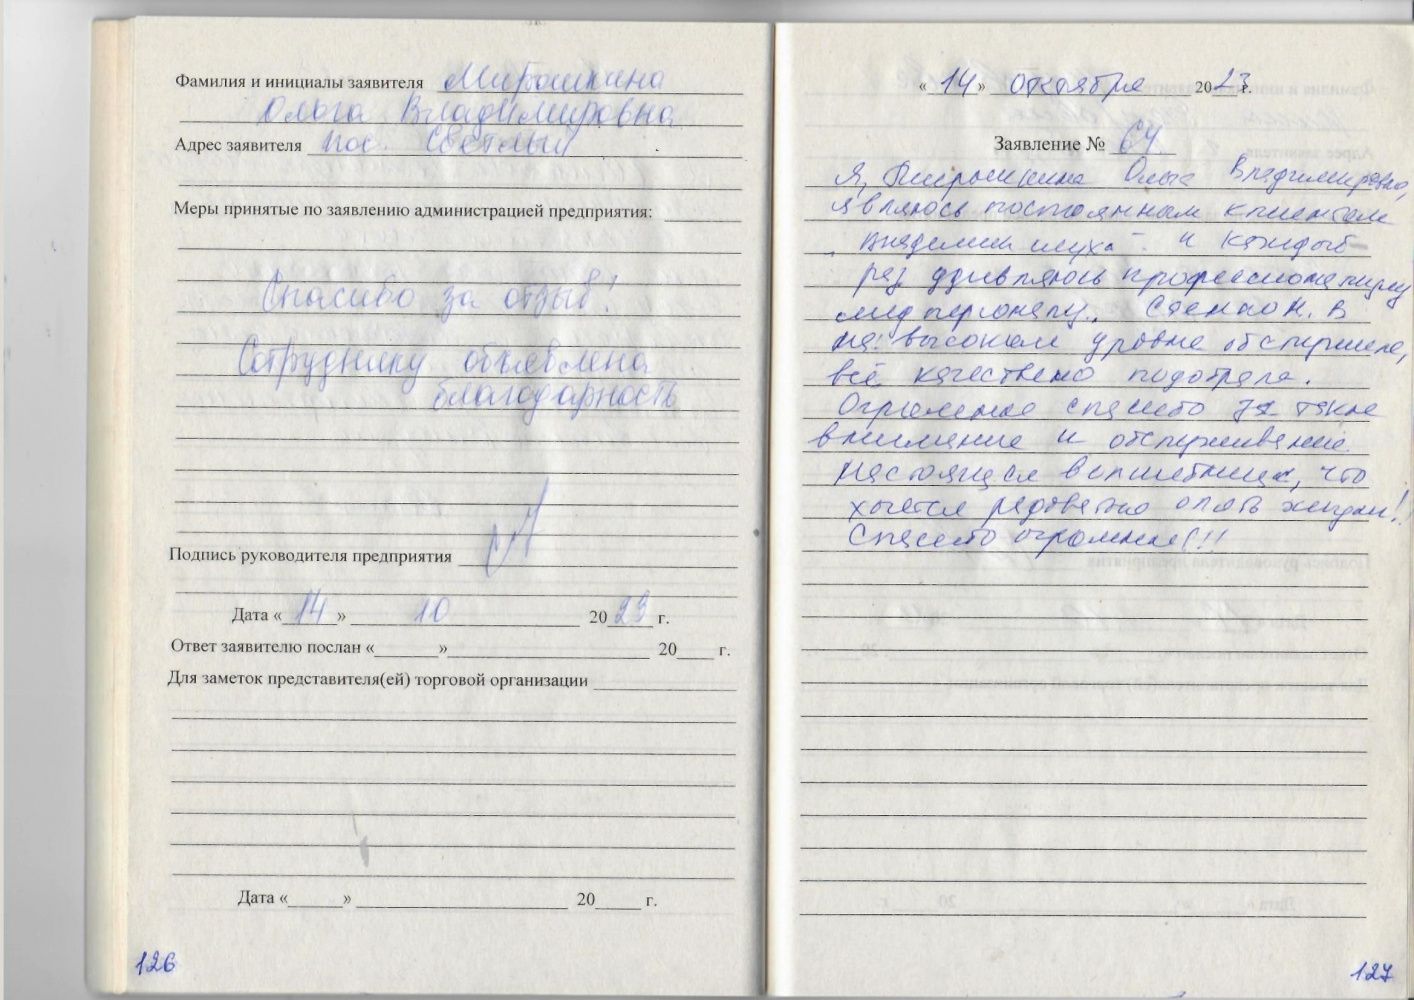 Фамилия и инициалы заявителя Мирошкина
Ольга Владимировна
Адрес заявителя пос. Светлый
Меры принятые по заявлению администрацией предприятия:
Спасибо за отзыв!
Сотруднику объявлена
благодарность
Подпись руководителя предприятия
Дата «14» 10 2023 г.
Ответ заявителю послан «______»____________ 20____ г.
Для заметок представителя(ей) торговой организации
Дата «______» ____________ 20_____ г.
126
«14» октября 2023 г.
Заявление № 64
Я, Мирошкина Ольга Владимировна,
являюсь постоянным клиентом
"Академии слуха" и каждый
раз удивляюсь профессионализму
мед персоналу. Н. В
на высоком уровне обслужила,
всё качествено подобрала.
Огромное спасибо за такое
внимание и обслуживание
Настоящая волшебница, что
хочется радоватся опять жизни!
Спасибо огромное!!!
127